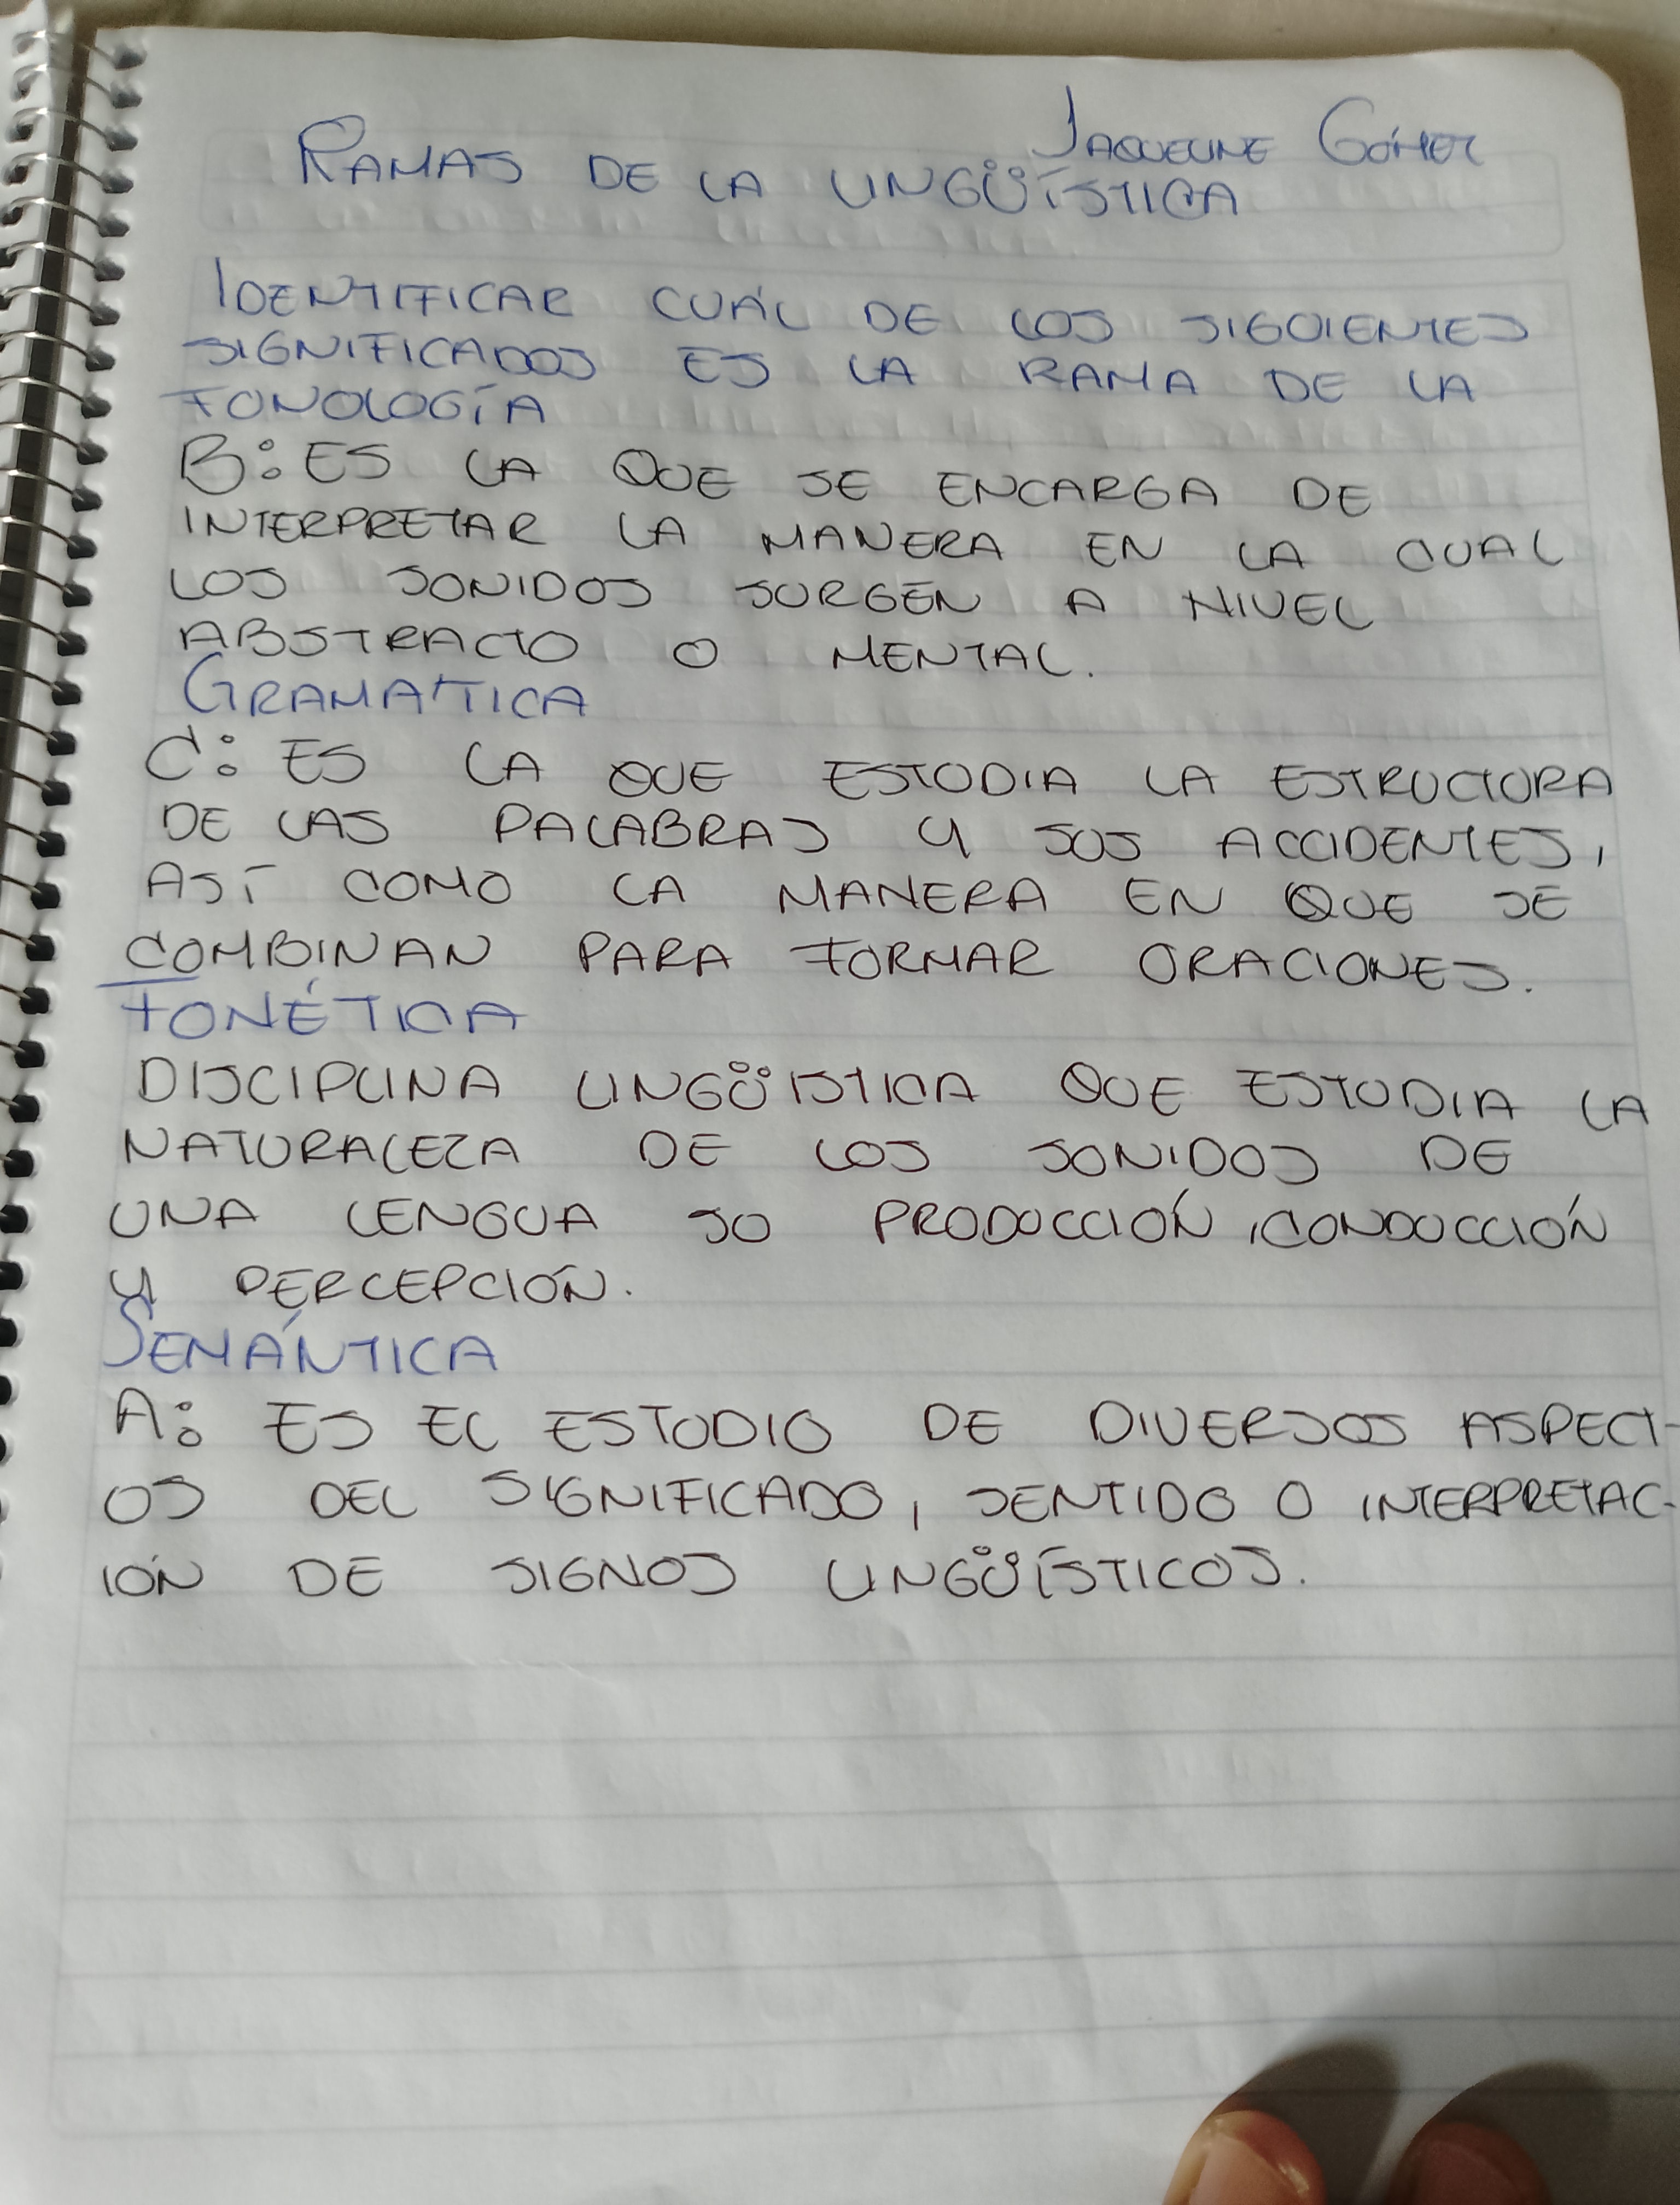 JAQUELINE GÓMEZ
RAMAS DE LA LINGÜÍSTICA
IDENTIFICAR CUÁL DE LOS SIGUIENTES
SIGNIFICADOS ES LA RAMA DE LA
FONOLOGÍA
B: ES LA QUE SE ENCARGA DE
INTERPRETAR LA MANERA EN LA CUAL
LOS SONIDOS SURGEN A NIVEL
ABSTRACTO O MENTAL.
GRAMÁTICA
C: ES LA QUE ESTUDIA LA ESTRUCTURA
DE LAS PALABRAS Y SUS ACCIDENTES,
ASÍ COMO LA MANERA EN QUE SE
COMBINAN PARA FORMAR ORACIONES.
FONÉTICA
DISCIPLINA LINGÜISTICA QUE ESTUDIA LA
NATURALEZA DE LOS SONIDOS DE
UNA LENGUA SU PRODUCCIÓN, CONDUCCIÓN
Y PERCEPCIÓN.
SEMÁNTICA
A: ES EL ESTUDIO DE DIVERSOS ASPECT-
OS DEL SIGNIFICADO, SENTIDO O INTERPRETAC-
IÓN DE SIGNOS LINGÜÍSTICOS.